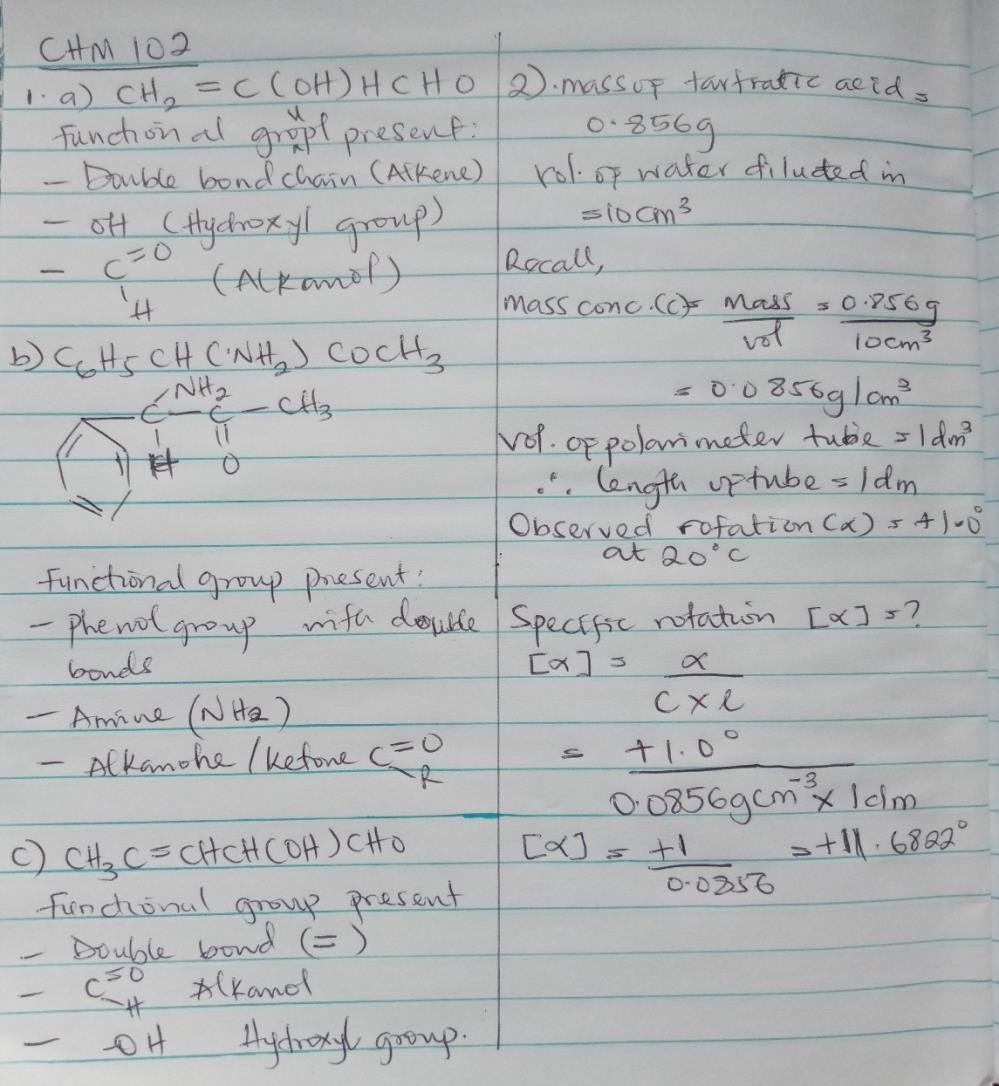 CHM 102
1. a) CH₂ = C(OH)HCHO
functional group present:
- Double bond chain (Alkene)
- OH (Hydroxyl group)
- C=O (Alkanol)
H
b) C₆H₅CH(NH₂)COCH₃
NH₂
C - C - CH₃
H O
functional group present:
- Phenol group with double
bonds
- Amine (NH₂)
- Alkanone / Ketone C=O
R
c) CH₃C=CHCH(OH)CHO
functional group present
- Double bond (=)
- C=O Alkanol
H
- OH Hydroxyl group.
2). mass of tartratic acid =
0.856g
vol. of water diluted in
=10cm³
Recall,
Mass conc.(c)= Mass = 0.856g
vol 10cm³
= 0.0856g/cm³
Vol. of polarimeter tube = 1dm³
∴ length of tube = 1dm
Observed rotation (α) = +1.0°
at 20°C
Specific rotation [α] = ?
[α] = α
C x l
= +1.0°
0.0856gcm⁻³ x 1dm
[α] = +1 = +11.6822°
0.0856